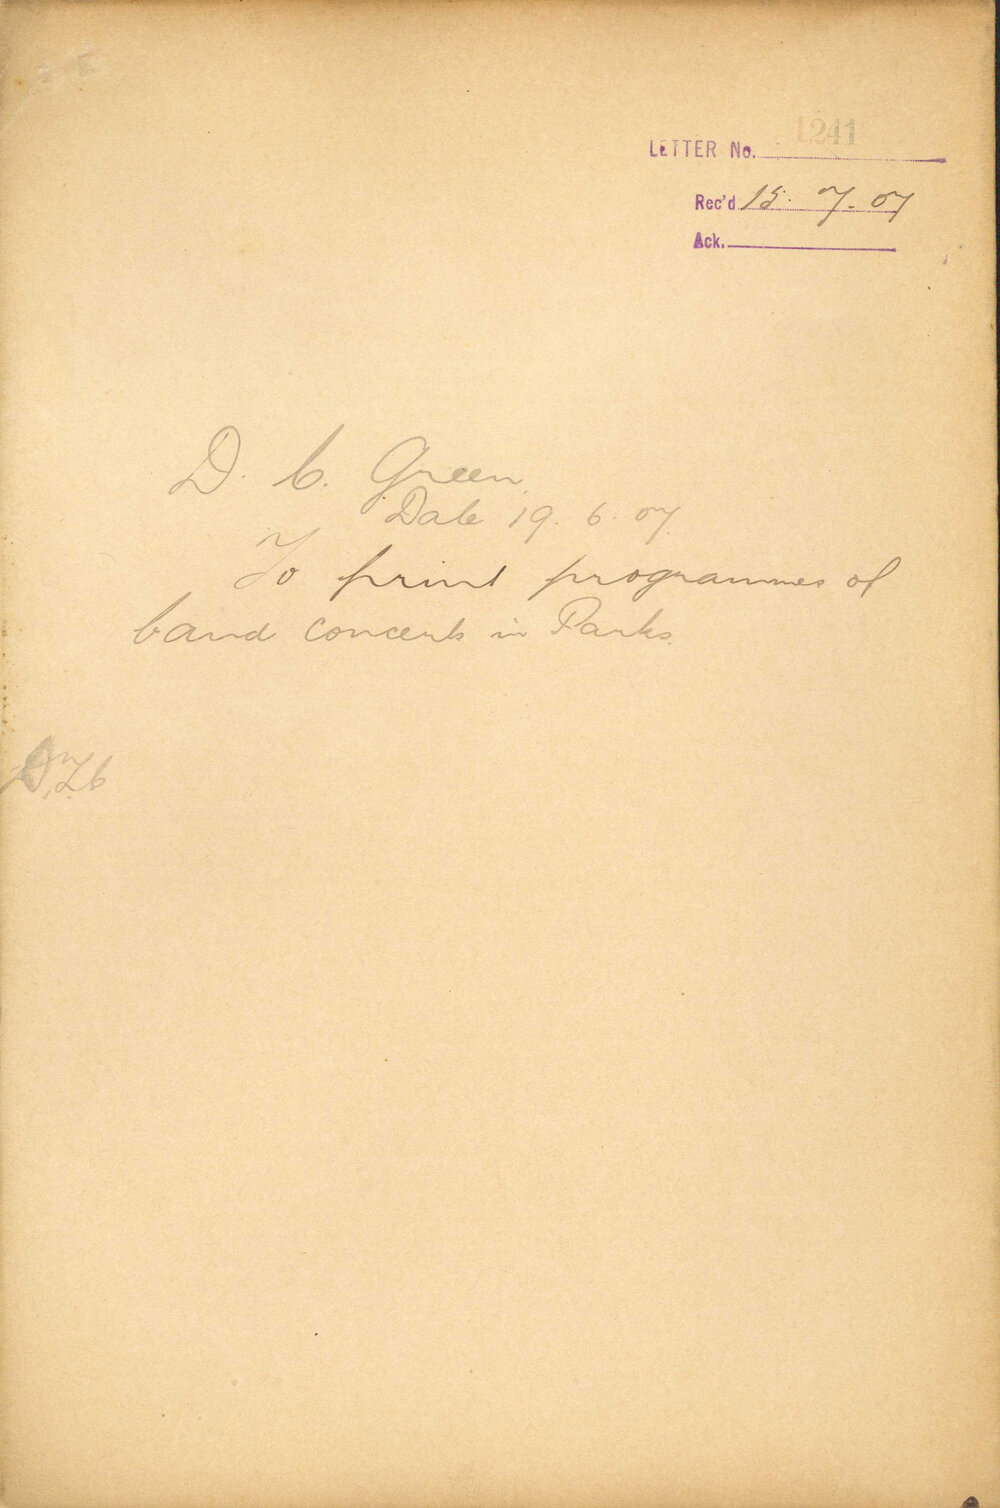 LETTER No. 1241
Rec'd 15. 7. 07
Ack.
D. C. Green
Date 19. 6. 07
To print programmes of
band concerts in Parks.